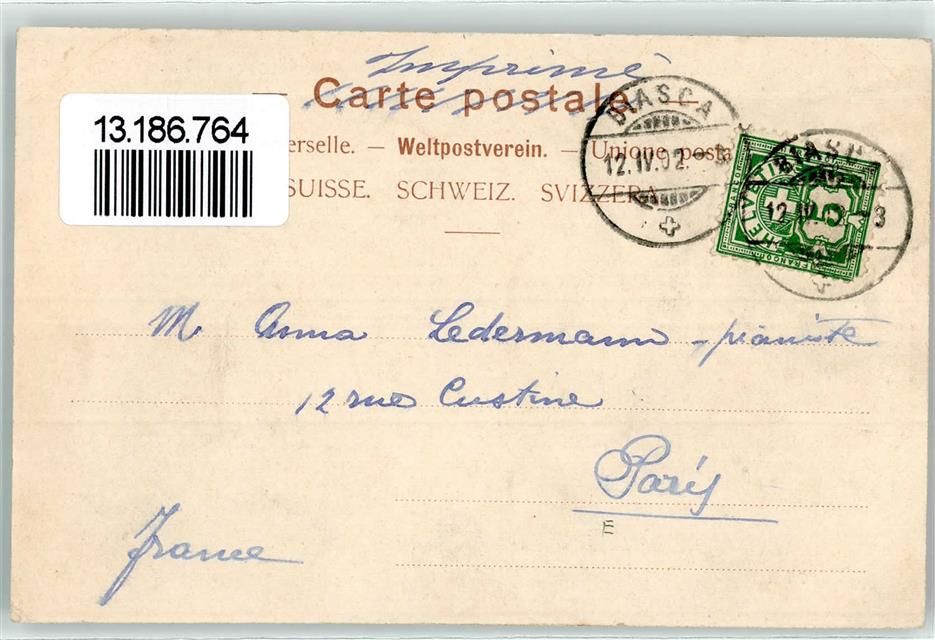 Imprimé
Carte postale
13.186.764
erselle. — Weltpostverein. — Unione posta
SUISSE. SCHWEIZ. SVIZZERA.
BIASCA
12.IV.02.
HELVETIA
FRANCO
5
12 IV
3
M. Anna Ledermann - pianiste
12 rue Custine
Paris
E
France